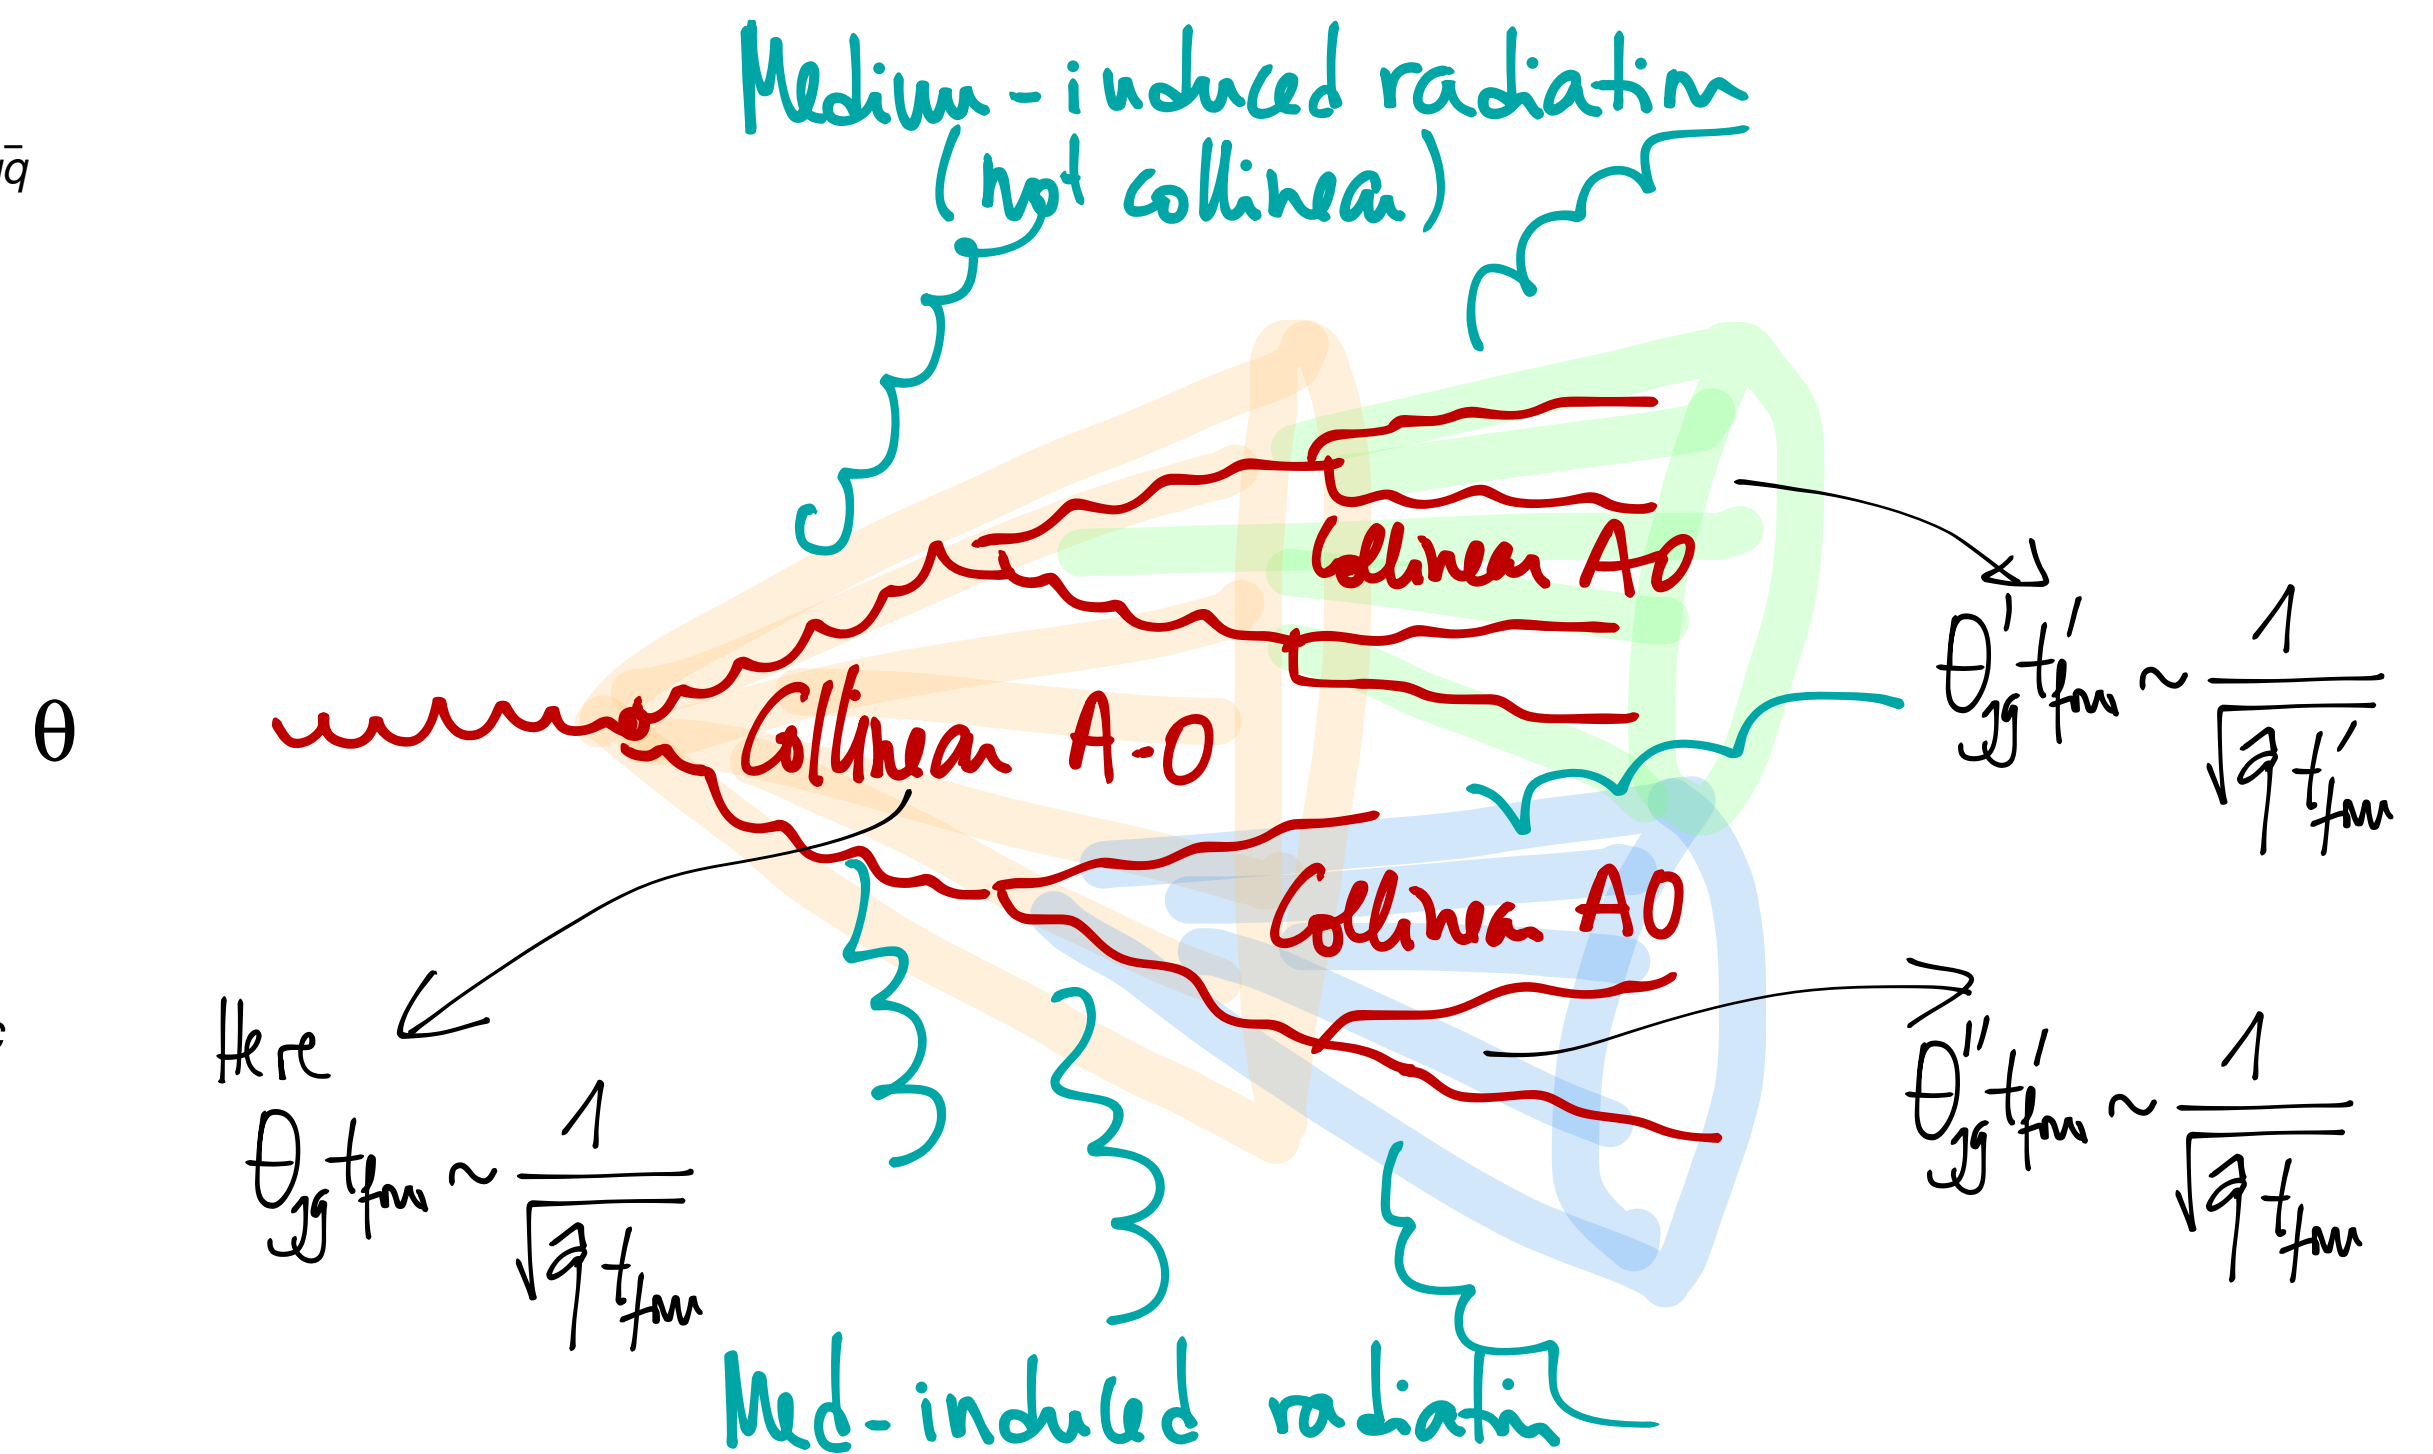 Medium-induced radiation
(not collinear)
q̄
θ
Collinear AO
Collinear A-O
Collinear AO
θ'gg t'fm ~ 1/√q̂ t'fm
Here
θgg tfm ~ 1/√q̂ tfm
θ''gg t'fm ~ 1/√q̂ tfm
Med-induced radiatin